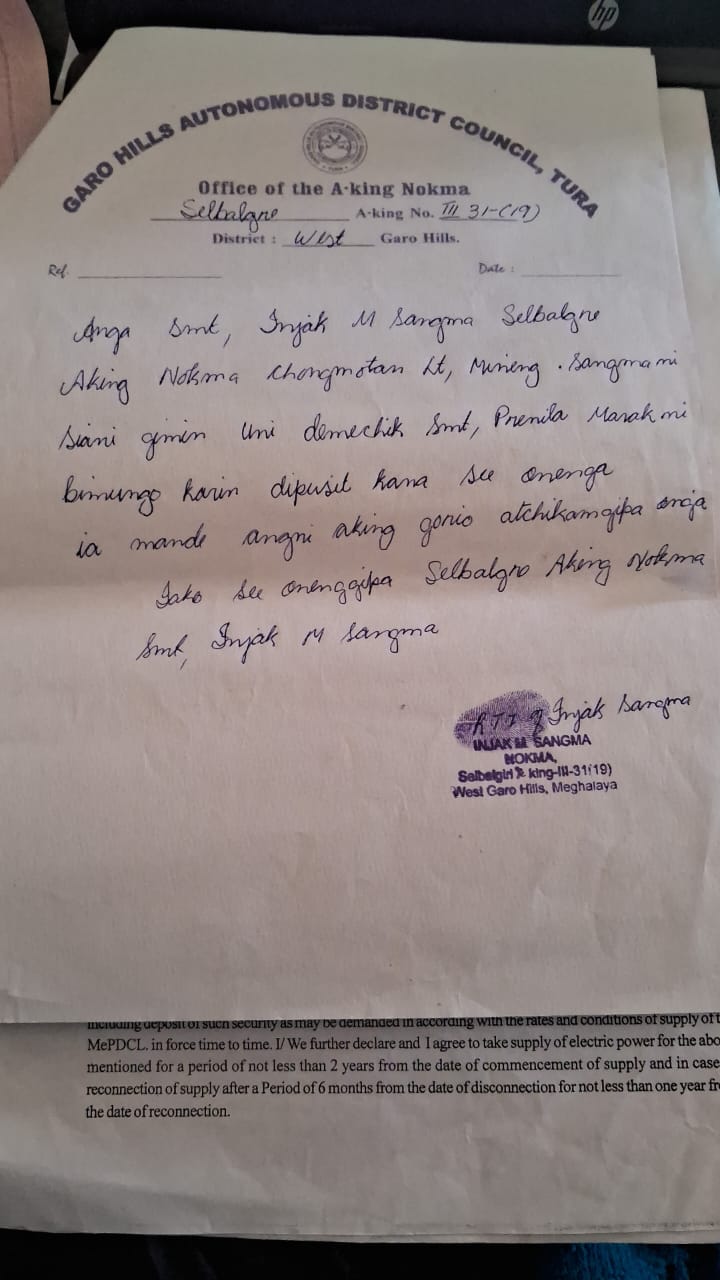 hp
GARO HILLS AUTONOMOUS DISTRICT COUNCIL, TURA
Office of the A-king Nokma
Selbalgre A-king No. III 31-(19)
District : West Garo Hills.
Ref. Date :
Anga Smt, Injak M Sangma Selbalgre
Aking Nokma Chongmotan Lt, Mineng . Sangma ni
siani gimin uni demechik Smt, Prenila Marak ni
bimungo karin dipusit kana see onenga
ia mande angni aking gonio atchikamgipa onga
Iako see onenggipa Selbalgro Aking Nokma
Smt, Injak M Sangma
RTI of Injak Sangma
INJAK M SANGMA
NOKMA,
Selbelgiri A king-III-31(19)
West Garo Hills, Meghalaya
including deposit of such security as may be demanded in according with the rates and conditions of supply of
MePDCL. in force time to time. I/ We further declare and I agree to take supply of electric power for the abo
mentioned for a period of not less than 2 years from the date of commencement of supply and in case
reconnection of supply after a Period of 6 months from the date of disconnection for not less than one year fr
the date of reconnection.